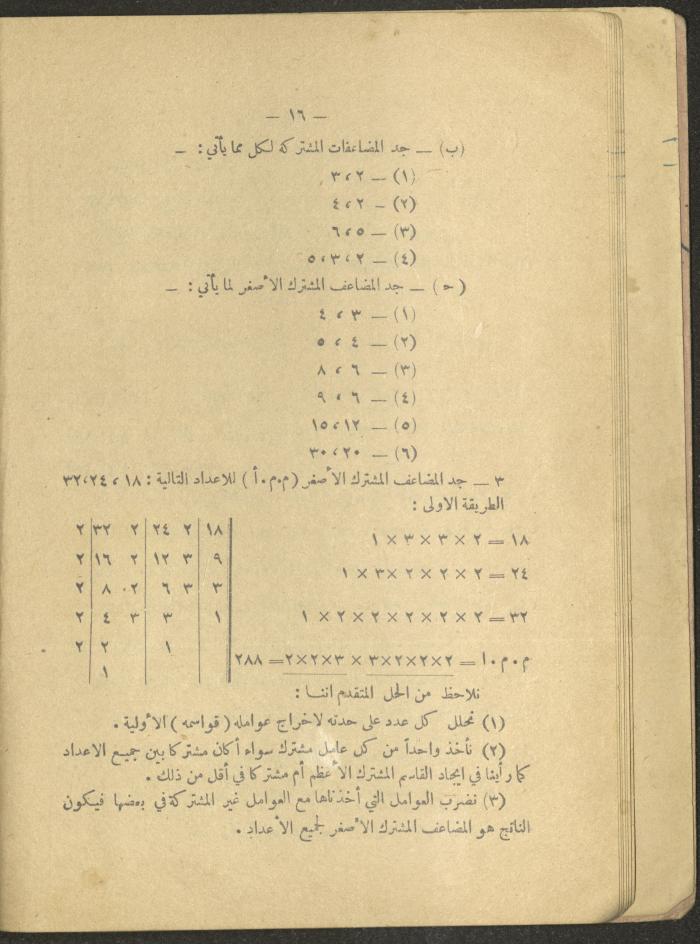 — ١٦ —
(ب) — جد المضاعفات المشتركة لكل مما يأتي : —
(١) — ٢ ، ٣
(٢) — ٢ ، ٤
(٣) — ٥ ، ٦
(٤) — ٢ ، ٣ ، ٥
(ح) — جد المضاعف المشترك الأصغر لما يأتي : —
(١) — ٣ ، ٤
(٢) — ٤ ، ٥
(٣) — ٦ ، ٨
(٤) — ٦ ، ٩
(٥) — ١٢ ، ١٥
(٦) — ٢٠ ، ٣٠
٣ — جد المضاعف المشترك الأصغر (م.م.أ) للاعداد التالية : ١٨ ، ٢٤ ، ٣٢
الطريقة الاولى :
١٨ = ٢ × ٣ × ٣ × ١
٢٤ = ٢ × ٢ × ٢ × ٣ × ١
٣٢ = ٢ × ٢ × ٢ × ٢ × ٢ × ١
م.م.ا = ٢×٢×٢×٣ × ٣×٢×٢ = ٢٨٨
١٨ ٢ ٢٤ ٢ ٣٢ ٢
٩ ٣ ١٢ ٢ ١٦ ٢
٣ ٣ ٦ ٢ ٨ ٢
١ ٣ ٣ ٤ ٢
١ ٢ ٢
١
نلاحظ من الحل المتقدم اننا :
(١) نحلل كل عدد على حدته لاخراج عوامله ( قواسمه ) الأولية .
(٢) نأخذ واحداً من كل عامل مشترك سواء أكان مشتركا بين جميع الاعداد
كما رأينا في ايجاد القاسم المشترك الأعظم أم مشتركا في أقل من ذلك .
(٣) نضرب العوامل التي أخذناها مع العوامل غير المشتركة في بعضها فيكون
الناتج هو المضاعف المشترك الأصغر لجميع الأعداد .